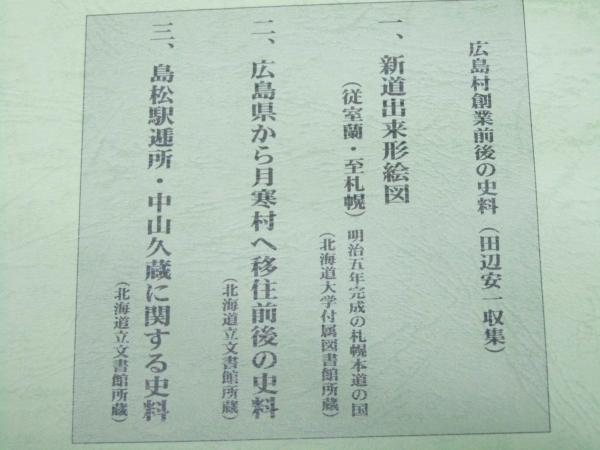 広島村創業前後の史料（田辺安一収集）
一、新道出来形絵図
（従室蘭・至札幌）明治五年完成の札幌本道の国
（北海道大学付属図書館所蔵）
二、広島県から月寒村へ移住前後の史料
（北海道立文書館所蔵）
三、島松駅逓所・中山久蔵に関する史料
（北海道立文書館所蔵）